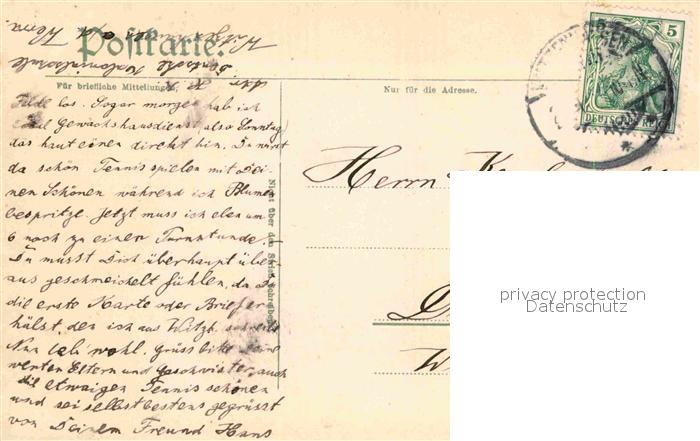 Postkarte.
Deutsche Kolonialschule
Für briefliche Mitteilungen.
Nur für die Adresse.
5
DEUTSCHES REICH
los. Sogar morgen hab ich
Gewächshausdienst (also Sonntag)
das haut einen direkt hin. Du wirst
da schön Tennis spielen mit Dei-
nen Schönen während ich Blumen
bespritze. Jetzt muss ich eben um
6 noch zu einer Turnstunde.
Du musst Dich überhaupt über-
aus geschmeichelt fühlen, da Du
die erste Karte oder Brief er-
hälst, den ich aus Witzh. schreibe
Nun leb wohl. Grüss bitte Deine
werten Eltern und Geschwister, auch
die etwaigen Tennisschönen
und sei selbst bestens gegrüsst
von Deinem Freund Hans
Nicht über den Strich schreiben
Herrn
privacy protection
Datenschutz